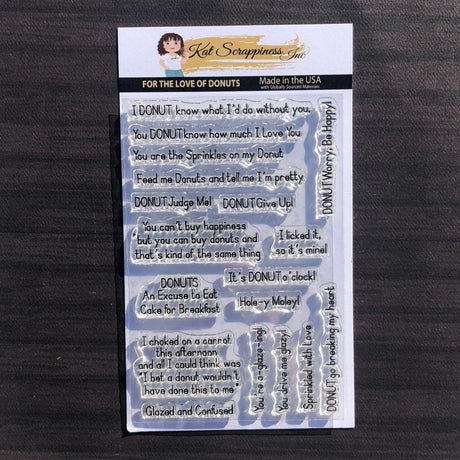 Kat Scrappiness, Inc
FOR THE LOVE OF DONUTS
Made in the USA
with Globally Sourced Materials
I DONUT know what I'd do without you.
You DONUT know how much I Love You
You are the Sprinkles on my Donut
Feed me Donuts and tell me I'm pretty
DONUT Judge Me!
DONUT Give Up!
DONUT Worry, Be Happy!
You can't buy happiness
but you can buy donuts and
that's kind of the same thing
I licked it,
so it's mine!
DONUTS
An Excuse to Eat
Cake for Breakfast
It's DONUT o'clock!
Hole-y Moley!
I choked on a carrot
this afternoon
and all I could think was
"I bet a donut wouldn't
have done this to me"
Glazed and Confused
You're a-glaze-ing!
You drive me glazy!
Sprinkled with Love
DONUT go breaking my heart